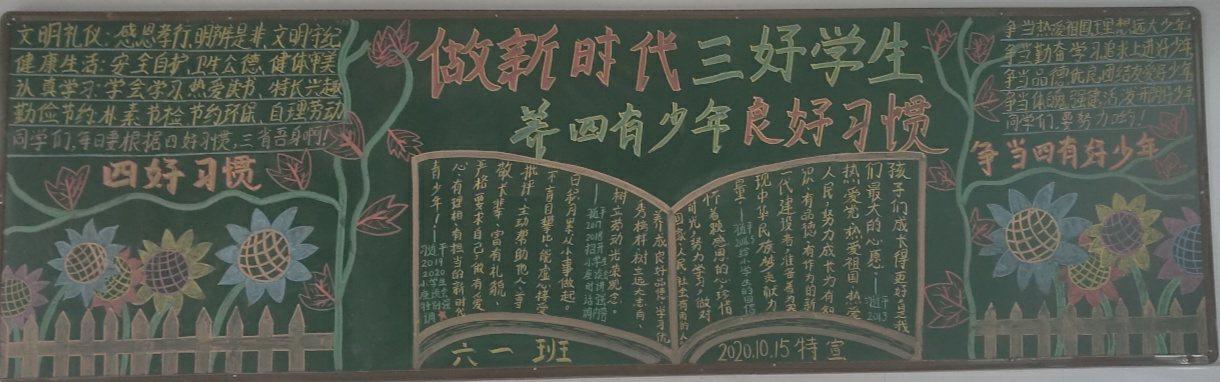 做新时代三好学生
养四有少年良好习惯
文明礼仪:感恩孝行、明辨是非、文明守纪
健康生活:安全自护、卫生公德、健体审美
认真学习:学会学习、热爱读书、特长兴趣
勤俭节约:朴素节检、节约环保、自理劳动
同学们,每日要根据四好习惯,三省吾身啊!
四好习惯
孩子们成长得更好是我
们最大的心愿。
2013
热爱党、热爱祖国、热爱
人民,努力成长为有知
识、有品德、有作为的新
一代建设者,准备着为实
现中华民族
献力
量!
怀着感恩的心珍惜
时光,努力学习,做对
国家、人民、社会有用的人
养成良好品德,学习优
秀榜样,树立远大志向、
树立劳动光荣观念。
日积月累,从小事做起。
不盲目攀比,能虚心接受
批评,主动帮助他人,尊
敬长辈,富有礼貌。
严格要求自己,做有爱
心、有理想、有担当的新时代
青少年!
六一班
2020.10.15特宣
争当热爱祖国理想远大少年
争当勤奋学习追求上进好少年
争当品德优良团结友爱好少年
争当体魄强健活泼开朗好少年
同学们,要努力哟!
争当四有好少年